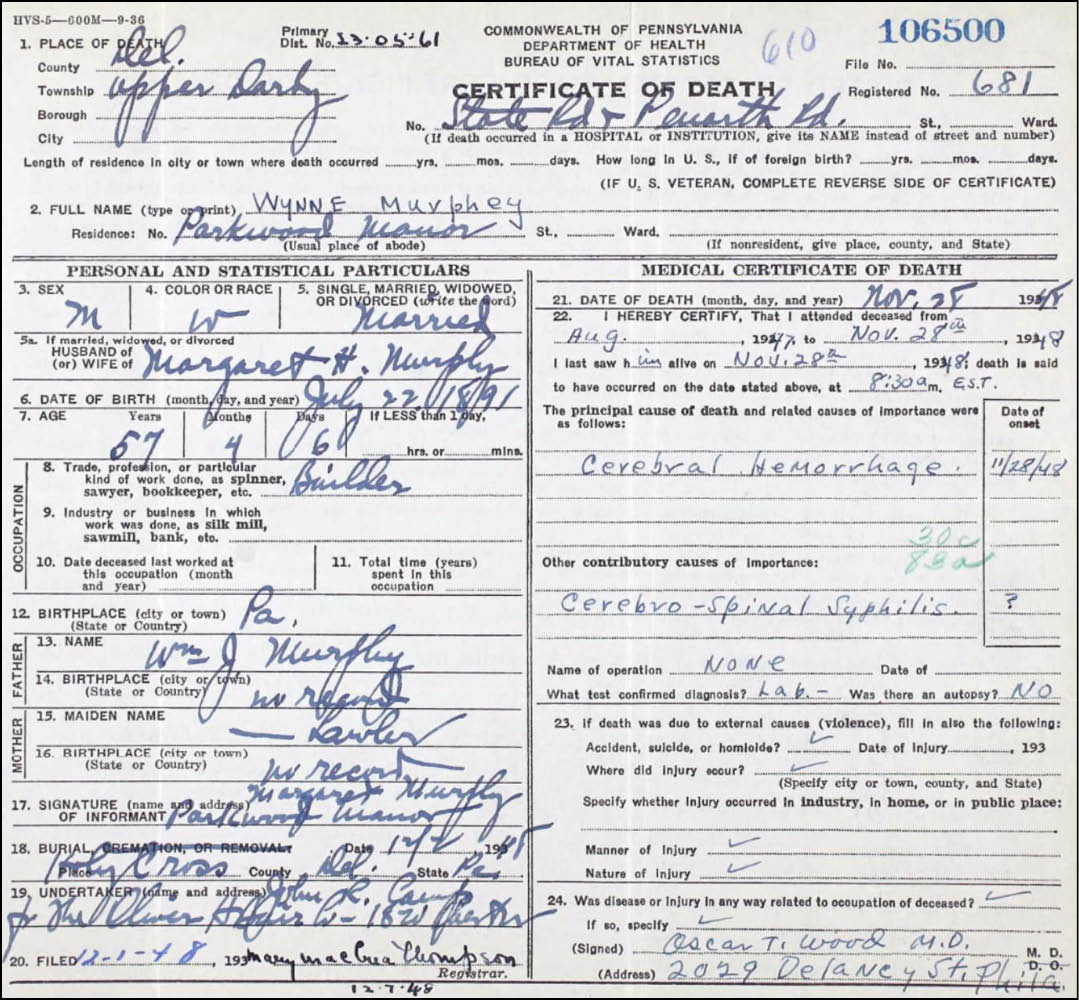 HVS-5—600M—9-36
Primary Dist. No. 23-05-61
COMMONWEALTH OF PENNSYLVANIA
DEPARTMENT OF HEALTH
BUREAU OF VITAL STATISTICS
610
106500
File No.
1. PLACE OF DEATH
County Del.
Township Upper Darby
Borough
City
CERTIFICATE OF DEATH
Registered No. 681
No. State Rd & Penarth Rd. St., Ward.
(If death occurred in a HOSPITAL or INSTITUTION, give its NAME instead of street and number)
Length of residence in city or town where death occurred yrs. mos. days. How long in U. S., if of foreign birth? yrs. mos. days.
(IF U. S. VETERAN, COMPLETE REVERSE SIDE OF CERTIFICATE)
2. FULL NAME (type or print) WYNNE Murphey
Residence: No. Parkwood Manor St., Ward.
(Usual place of abode) (If nonresident, give place, county, and State)
PERSONAL AND STATISTICAL PARTICULARS
3. SEX 4. COLOR OR RACE 5. SINGLE, MARRIED, WIDOWED, OR DIVORCED (write the word)
M W Married
5a. If married, widowed, or divorced
HUSBAND of
(or) WIFE of Margaret H. Murphy
6. DATE OF BIRTH (month, day, and year) July 22 1891
7. AGE Years Months Days If LESS than 1 day,
57 4 6 hrs. or mins.
OCCUPATION
8. Trade, profession, or particular
kind of work done, as spinner,
sawyer, bookkeeper, etc. Builder
9. Industry or business in which
work was done, as silk mill,
sawmill, bank, etc.
10. Date deceased last worked at
this occupation (month
and year)
11. Total time (years)
spent in this
occupation
12. BIRTHPLACE (city or town) Pa.
(State or Country)
FATHER
13. NAME Wm J Murphy
14. BIRTHPLACE (city or town)
(State or Country) no record
MOTHER
15. MAIDEN NAME — Lawler
16. BIRTHPLACE (city or town)
(State or Country) no record
17. SIGNATURE (name and address) Margaret Murphy
OF INFORMANT Parkwood Manor
18. BURIAL, CREMATION, OR REMOVAL: Date 12/2, 1948
Place Holy Cross County Del. State Pa.
19. UNDERTAKER (name and address) John R. Camp
for The Oliver H Bair Co - 1820
20. FILED 12-1-48, 193 Mary MacCrea Thompson
Registrar.
12.7.48
MEDICAL CERTIFICATE OF DEATH
21. DATE OF DEATH (month, day, and year) Nov. 28 1948
22. I HEREBY CERTIFY, That I attended deceased from
Aug., 1947, to Nov. 28th, 1948
I last saw him alive on Nov. 28th, 1948; death is said
to have occurred on the date stated above, at 8:30 a m. E.S.T.
The principal cause of death and related causes of importance were
as follows:
Date of onset
Cerebral Hemorrhage. 11/28/48
30c
83a
Other contributory causes of importance:
Cerebro-Spinal Syphilis. ?
Name of operation NONE Date of
What test confirmed diagnosis? Lab. - Was there an autopsy? NO
23. If death was due to external causes (violence), fill in also the following:
Accident, suicide, or homicide? ✓ Date of injury, 193
Where did injury occur? ✓
(Specify city or town, county, and State)
Specify whether injury occurred in industry, in home, or in public place:
Manner of injury ✓
Nature of injury ✓
24. Was disease or injury in any way related to occupation of deceased? ✓
If so, specify ✓
(Signed) Oscar T. Wood M.D. M. D.
D. O.
(Address) 2029 Delancey St. Phila.